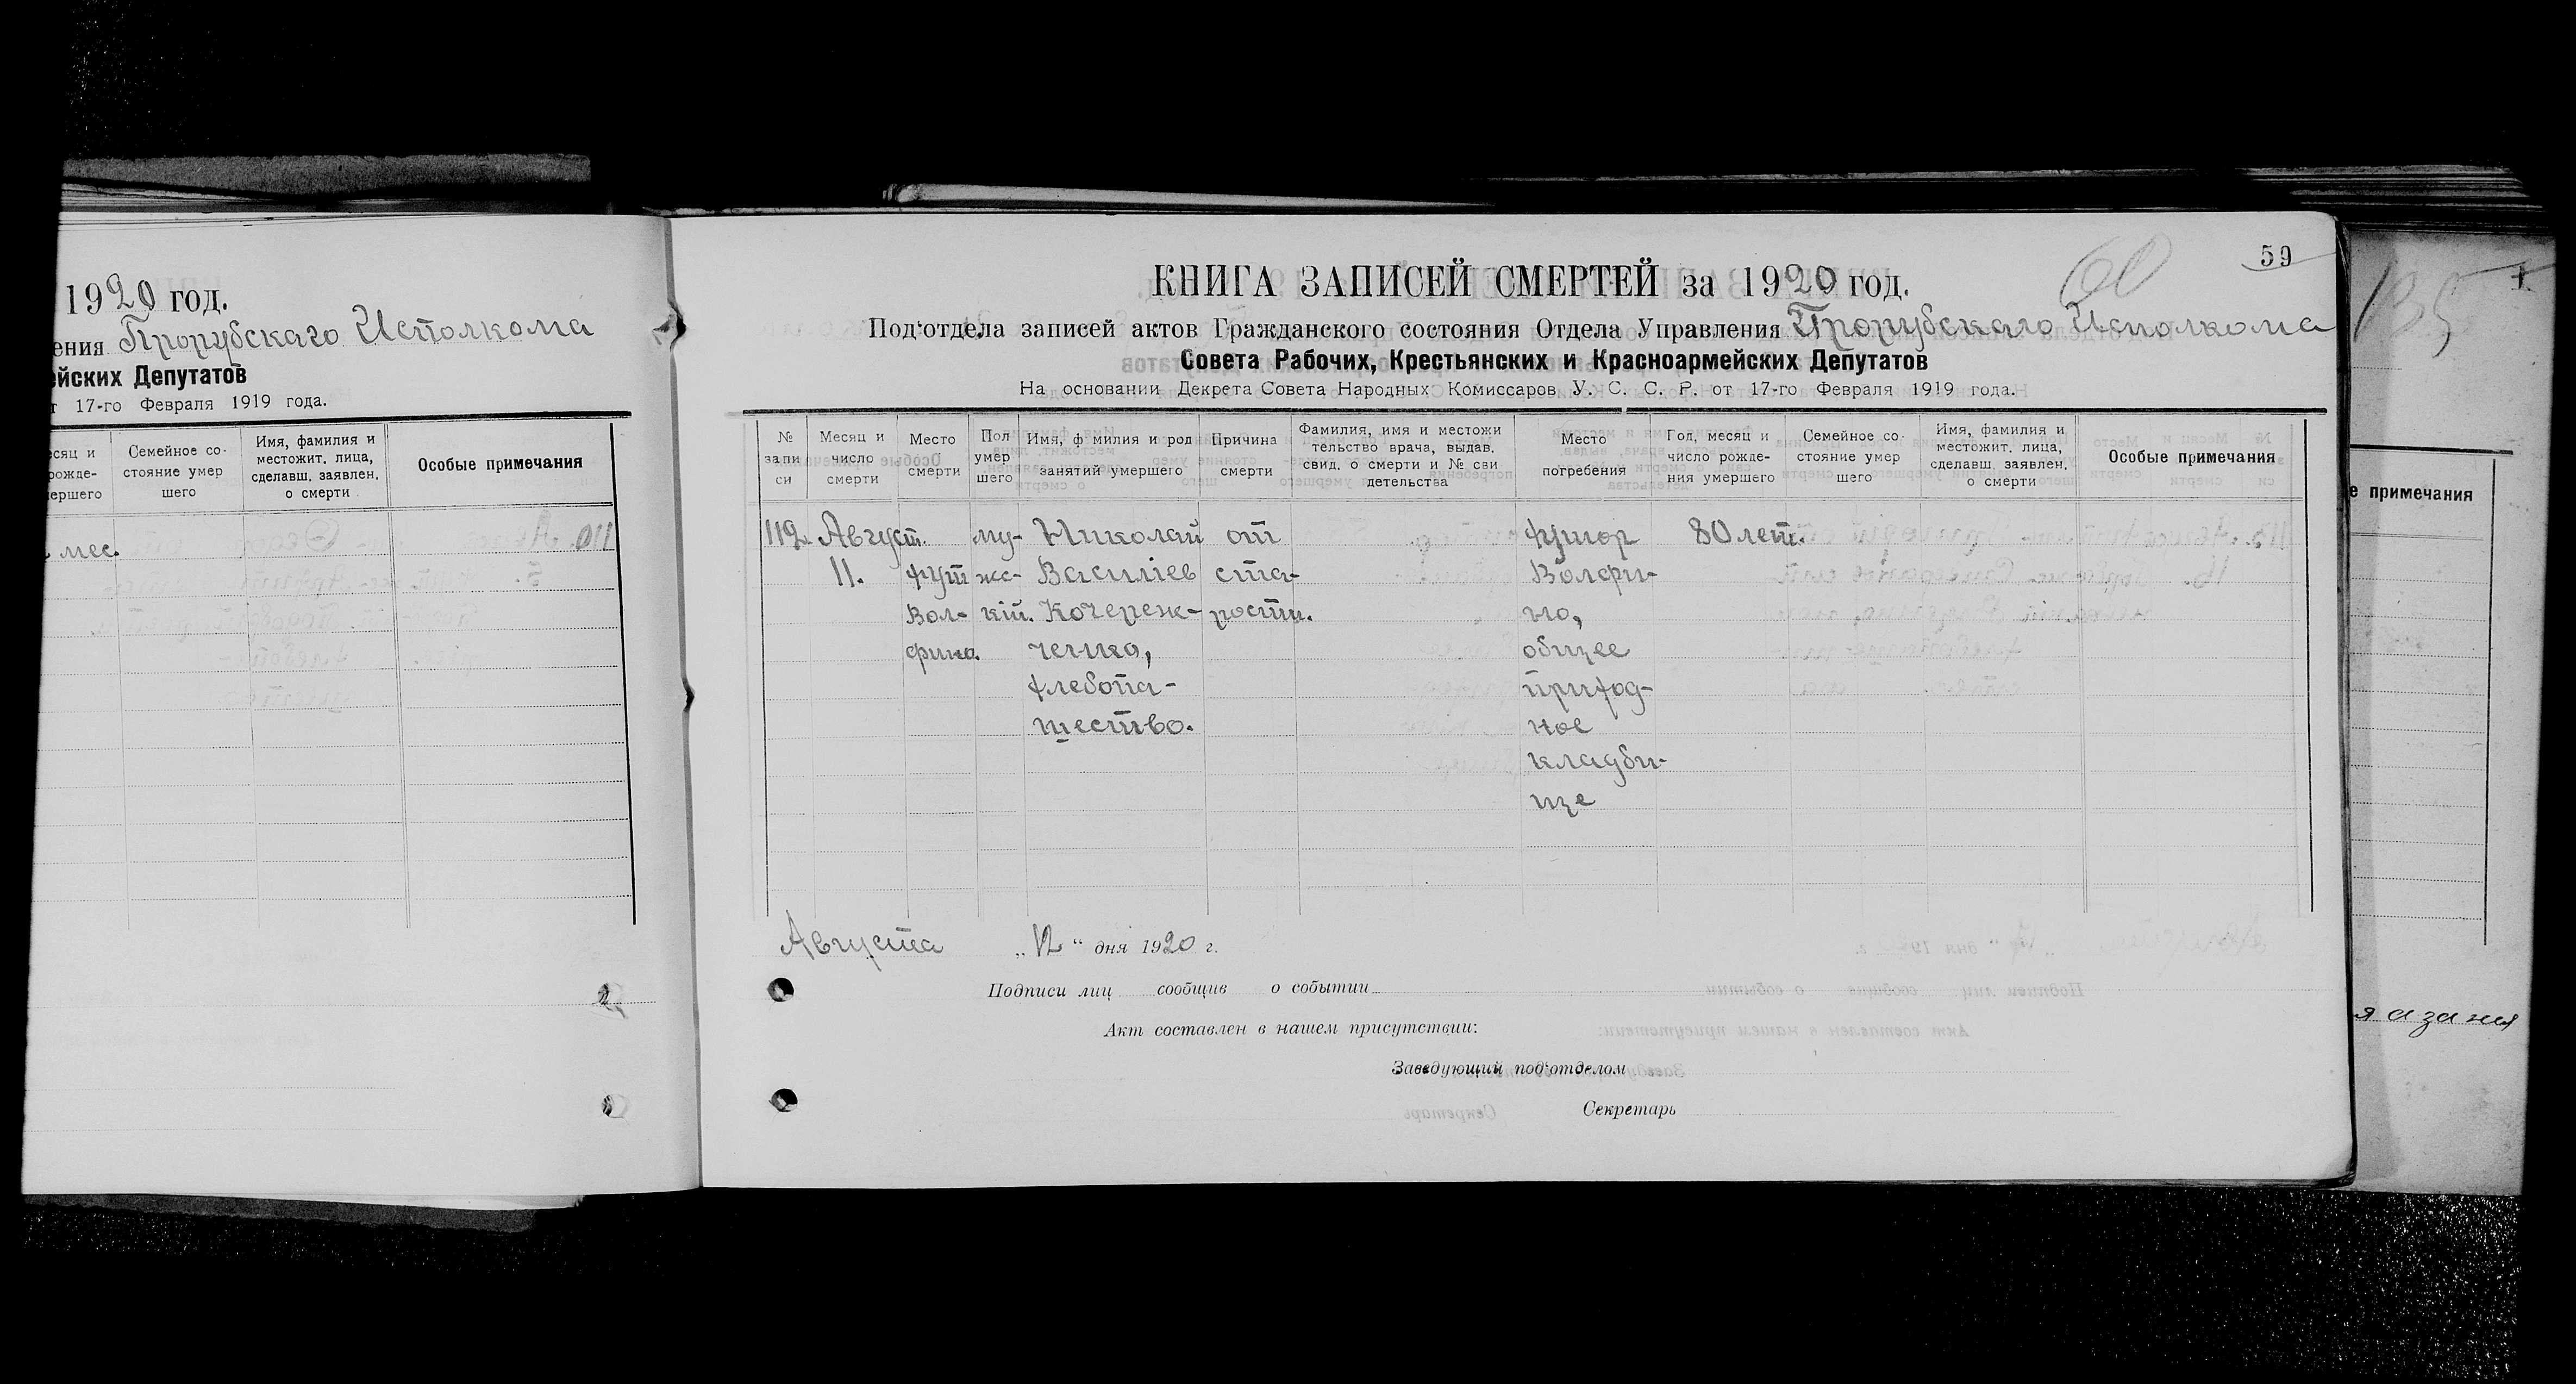 1920 год.
ения Прорубскаго Исполкома
ейских Депутатов
т 17-го Февраля 1919 года.
есяц и
рожде-
ершего
Семейное со-
стояние умер
шего
Имя, фамилия и
местожит. лица,
сделавш. заявлен.
о смерти
Особые примечания
мес.
59
60
КНИГА ЗАПИСЕЙ СМЕРТЕЙ за 1920 год.
Под'отдела записей актов Гражданского состояния Отдела Управления Прорубскаго Исполкома
Совета Рабочих, Крестьянских и Красноармейских Депутатов
На основании Декрета Совета Народных Комиссаров У. С. С. Р. от 17-го Февраля 1919 года.
№
запи
си
Месяц и
число
смерти
Место
смерти
Пол
умер
шего
Имя, ф милия и род
занятий умершего
Причина
смерти
Фамилия, имя и местожи
тельство врача, выдав.
свид. о смерти и № сви
детельства
Место
погребения
Год, месяц и
число рожде-
ния умершего
Семейное со-
стояние умер
шего
Имя, фамилия и
местожит. лица,
сделавш. заявлен.
о смерти
Особые примечания
112.
Август.
11.
хут
Вол-
фина.
му-
жс-
кій.
Николай
Василіев
Кочереж-
ченко,
хлебопа-
шество.
от
ста-
рости.
хутор
Волфи-
но,
общее
приход-
ное
кладби-
ще
80 лет.
Августа „12“ дня 1920 г.
Подписи лиц сообщив о событии
Акт составлен в нашем присутствии:
Заведующий под'отделом
Секретарь
135
1.
е примечания